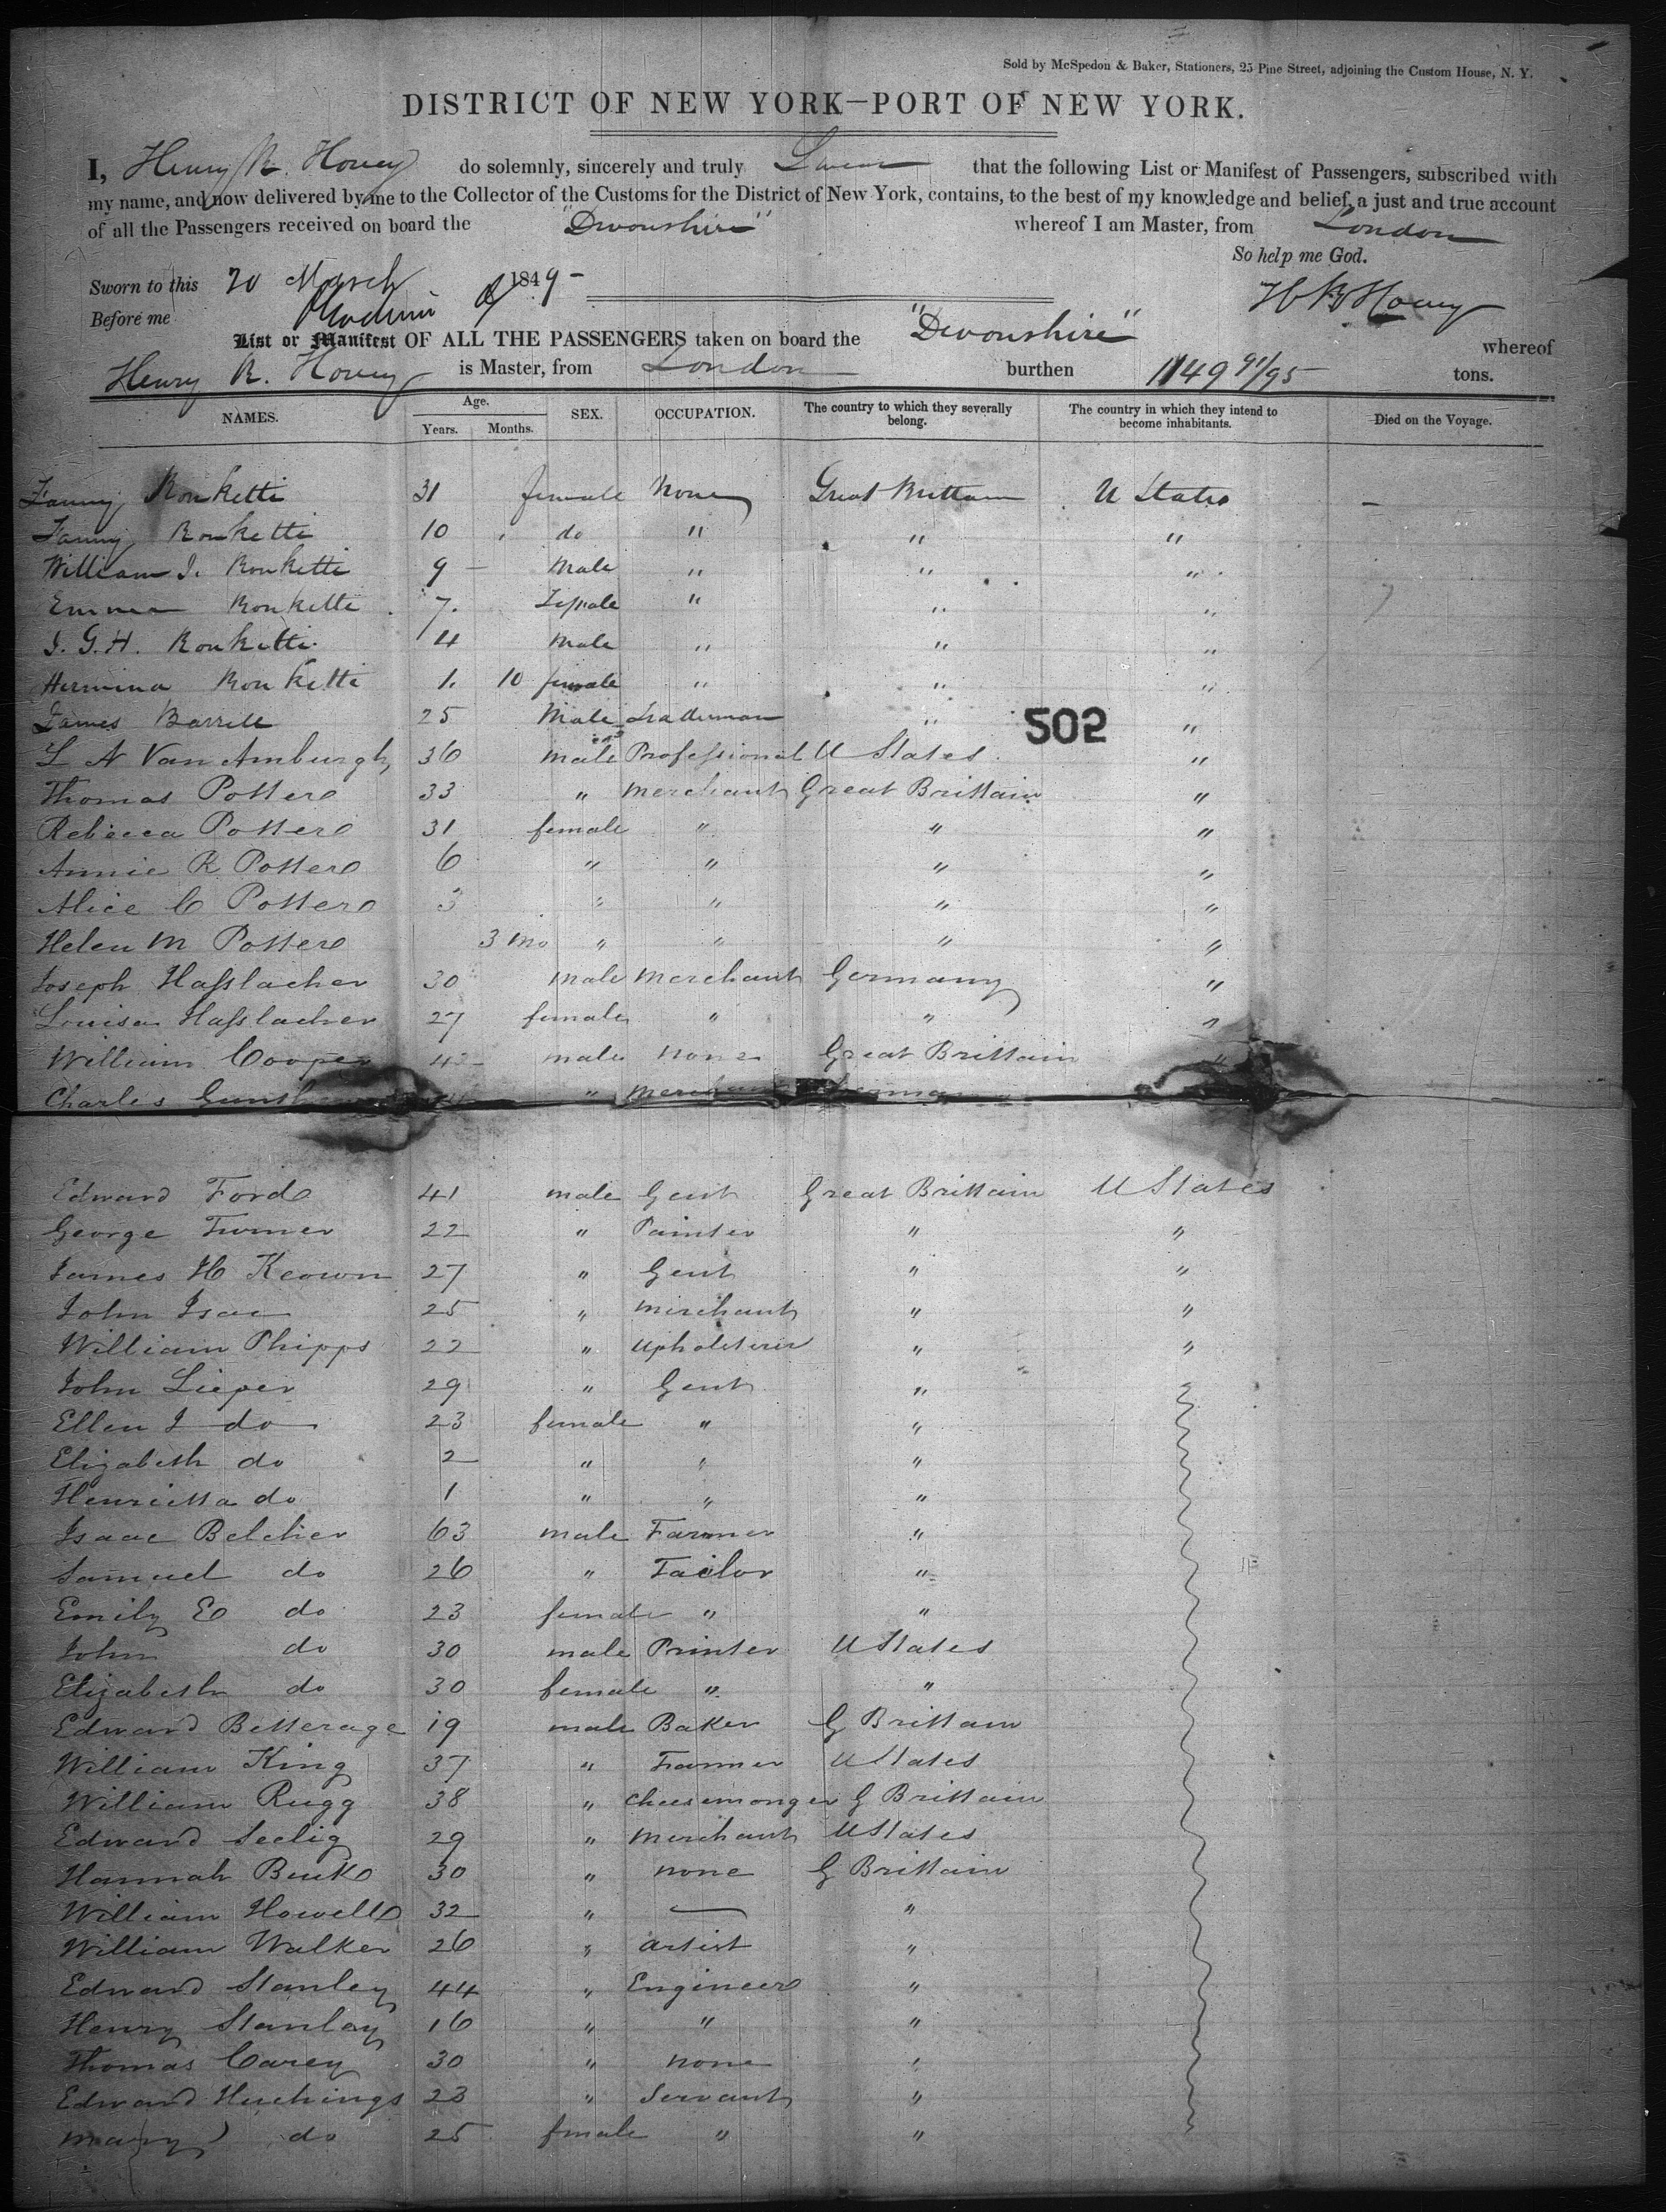 Sold by McSpedon & Baker, Stationers, 25 Pine Street, adjoining the Custom House, N. Y.
DISTRICT OF NEW YORK—PORT OF NEW YORK.
I, Henry R. Hovey do solemnly, sincerely and truly Swear that the following List or Manifest of Passengers, subscribed with
my name, and now delivered by me to the Collector of the Customs for the District of New York, contains, to the best of my knowledge and belief, a just and true account
of all the Passengers received on board the "Devonshire" whereof I am Master, from London
So help me God.
Sworn to this 20 March 1849 - H R Hovey
Before me
List or Manifest OF ALL THE PASSENGERS taken on board the "Devonshire" whereof
Henry R. Hovey is Master, from London burthen 1149 91/95 tons.
NAMES. Age. Years. Months. SEX. OCCUPATION. The country to which they severally belong. The country in which they intend to become inhabitants. Died on the Voyage.
Fanny Ronketti 31 female None Great Brittain U States -
Fanny Ronketti 10 do " " "
William J. Ronketti 9 - Male " " "
Emma Ronketti 7. Female " " "
J. G. H. Ronketti 4 Male " " "
Hermina Ronketti 1. 10 female " " "
James Barrell 25 Male Tradesman " "
502
L A Van Amburgh 36 male Professional U States "
Thomas Potter 33 " merchant Great Brittain "
Rebecca Potter 31 female " " "
Annie R Potter 6 " " " "
Alice C Potter 3 " " " "
Helen M Potter 3 mo " " " "
Joseph Hasslacher 30 male merchant Germany "
Louisa Hasslacher 27 female " " "
William Cooper male none Great Brittain "
Charles "
Edward Ford 41 male Gent Great Brittain U States
George Turner 22 " Painter " "
James H Keown 27 " Gent " "
John Isac 25 " merchant " "
William Phipps 22 " Upholsterer " "
John Lieper 29 " Gent "
Ellen J do 23 female " "
Elizabeth do 2 " " "
Henrietta do 1 " " "
Isaac Belcher 63 male Farmer "
Samuel do 26 " Tailor "
Emily E do 23 female " "
John do 30 male Printer U States
Elizabeth do 30 female " "
Edward Betterage 19 male Baker G Brittain
William King 37 " Farmer U States
William Rugg 38 " Cheesemonger G Brittain
Edward Seelig 29 " merchant U States
Hannah Buck 30 " none G Brittain
William Howell 32 " — "
William Walker 26 " artist "
Edward Stanley 44 " Engineer "
Henry Stanley 16 " " "
Thomas Carey 30 " none "
Edward Huchings 23 " Servant "
Mary do 25 female " "